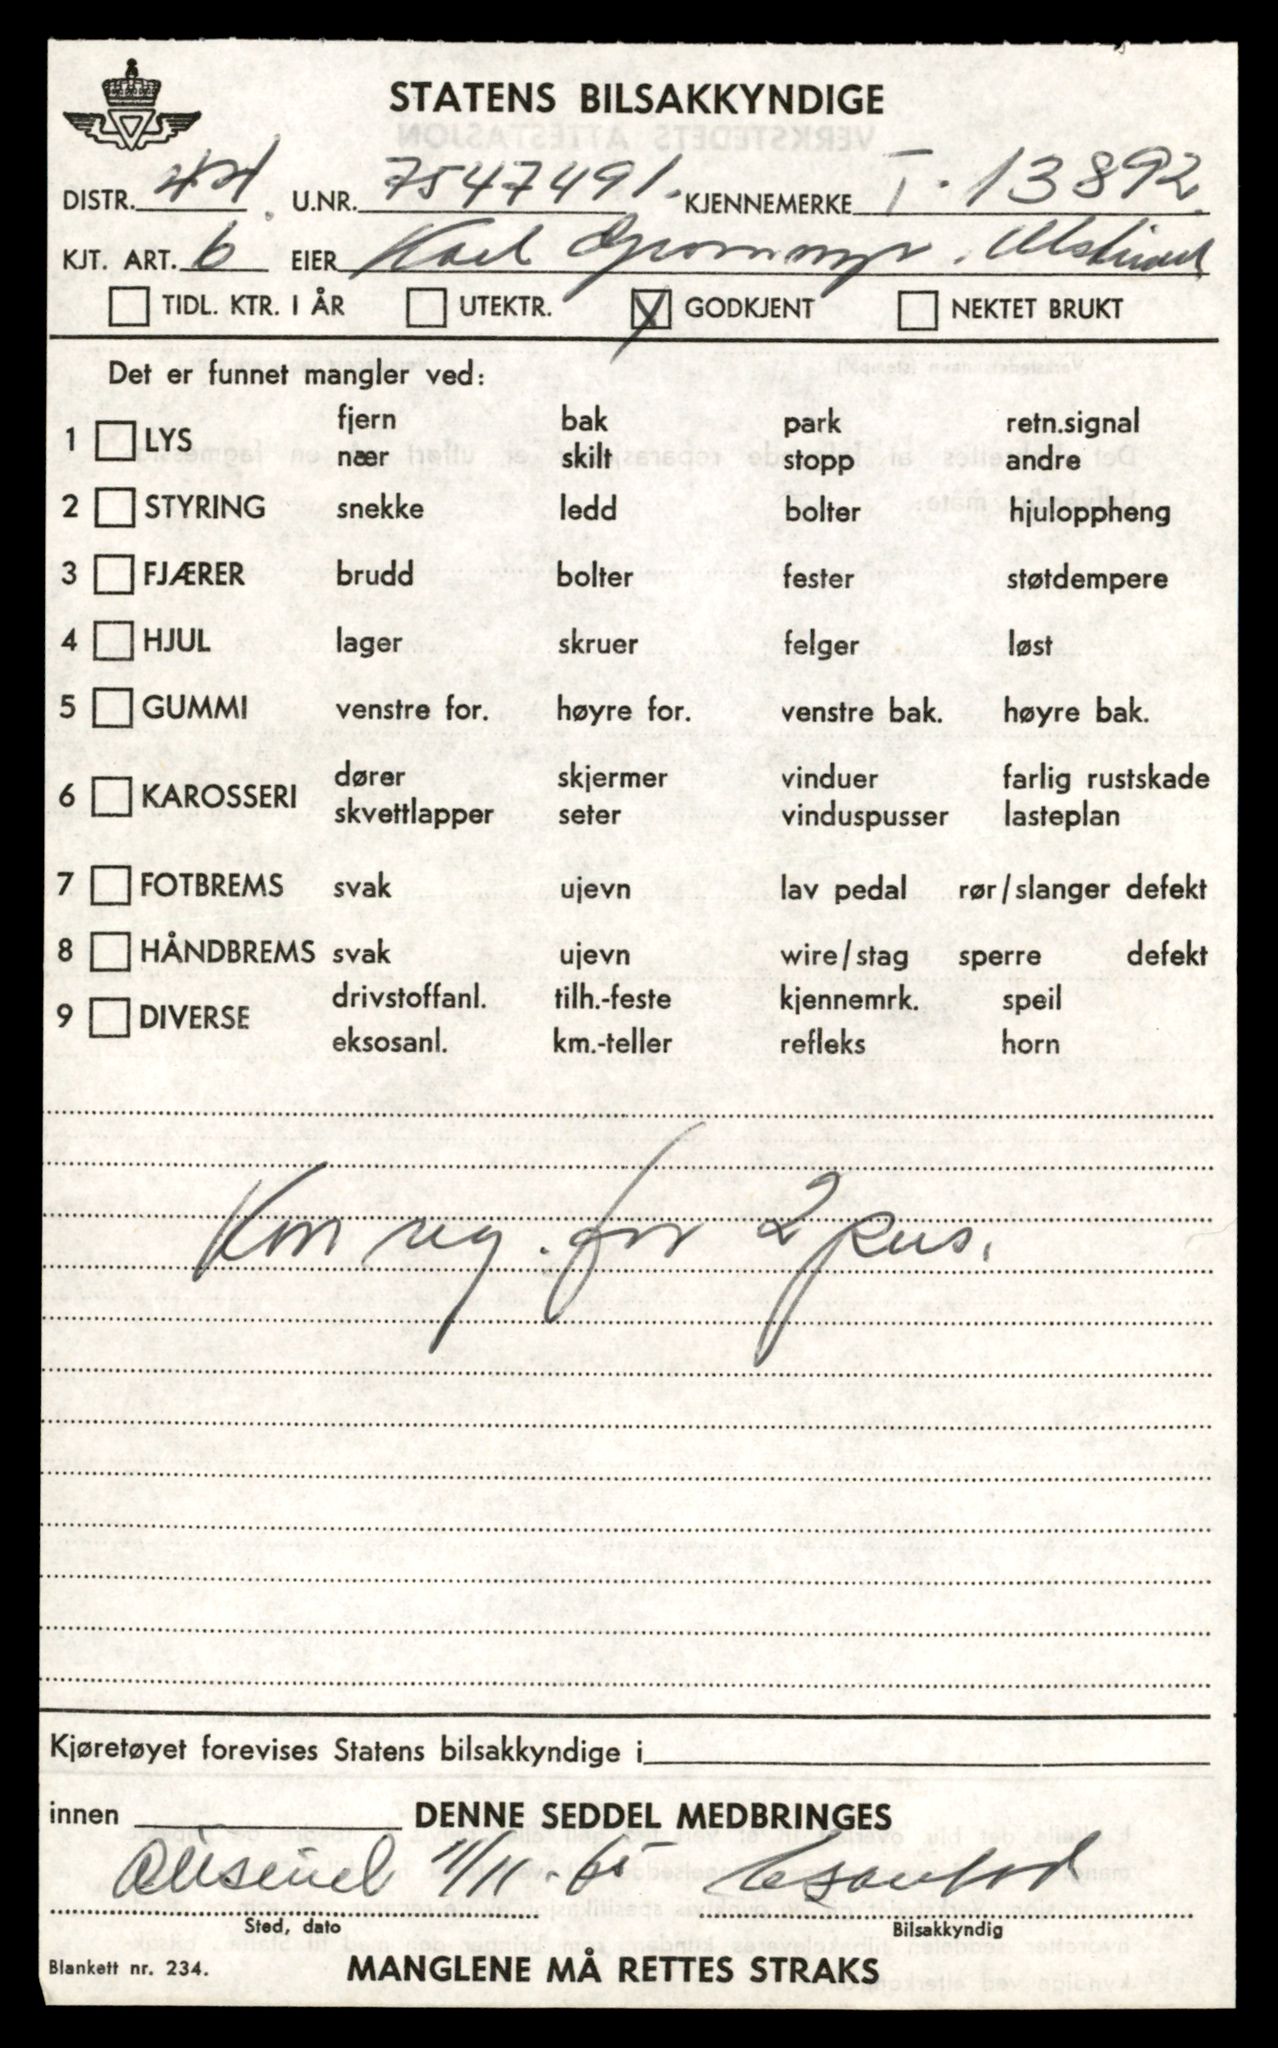 STATENS BILSAKKYNDIGE
DISTR. U.NR. 7547491. KJENNEMERKE T-13892
KJT. ART. 6 EIER Karl
TIDL. KTR. I ÅR UTEKTR. X GODKJENT NEKTET BRUKT
Det er funnet mangler ved:
fjern bak park retn.signal
1 LYS
nær skilt stopp andre
2 STYRING snekke ledd bolter hjuloppheng
3 FJÆRER brudd bolter fester støtdempere
4 HJUL lager skruer felger løst
5 GUMMI venstre for. høyre for. venstre bak. høyre bak.
dører skjermer vinduer farlig rustskade
6 KAROSSERI
skvettlapper seter vinduspusser lasteplan
7 FOTBREMS svak ujevn lav pedal rør/slanger defekt
8 HÅNDBREMS svak ujevn wire/stag sperre defekt
drivstoffanl. tilh.-feste kjennemrk. speil
9 DIVERSE
eksosanl. km.-teller refleks horn
reg. for 2 pers.
Kjøretøyet forevises Statens bilsakkyndige i
innen DENNE SEDDEL MEDBRINGES
11/11-65
Sted, dato Bilsakkyndig
Blankett nr. 234. MANGLENE MÅ RETTES STRAKS